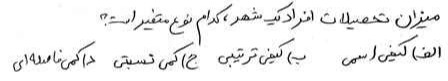 میزان تحصیلات افراد یک شهر، کدام نوع متغیر است؟
الف) کیفی اسمی ب) کیفی ترتیبی ج) کمی نسبتی د) کمی فاصله ای